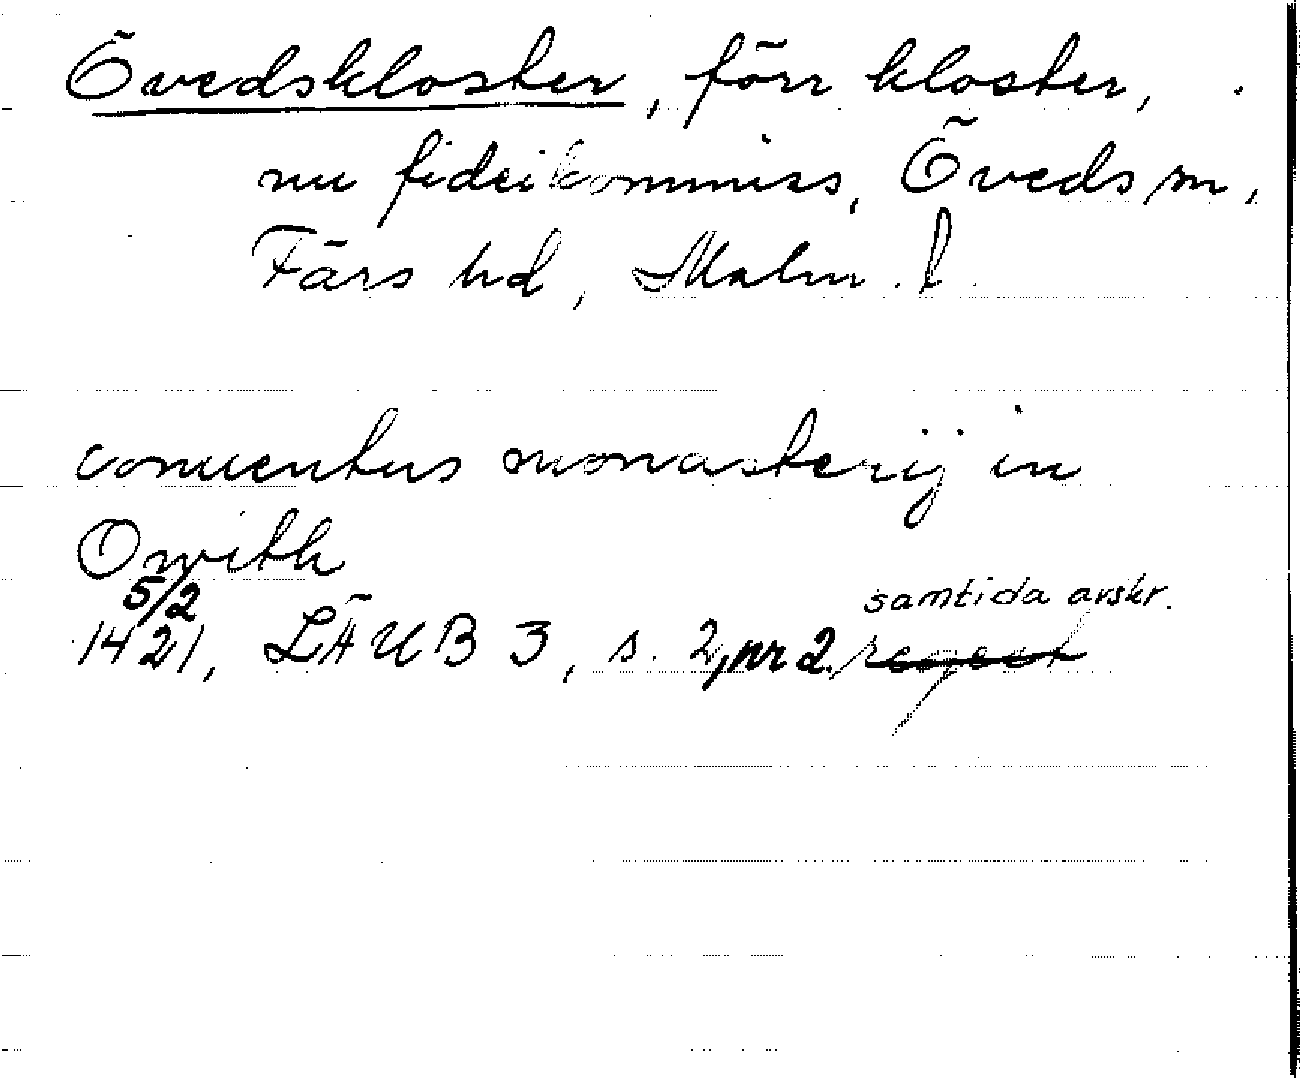 Övedskloster, förr kloster,
nu fideikommiss, Öveds sn,
Färs hd, Malm. l
conuentus monasterij in
Owith
5/2 samtida avskr.
1421, LÄUB 3, s. 2, nr 2, regest